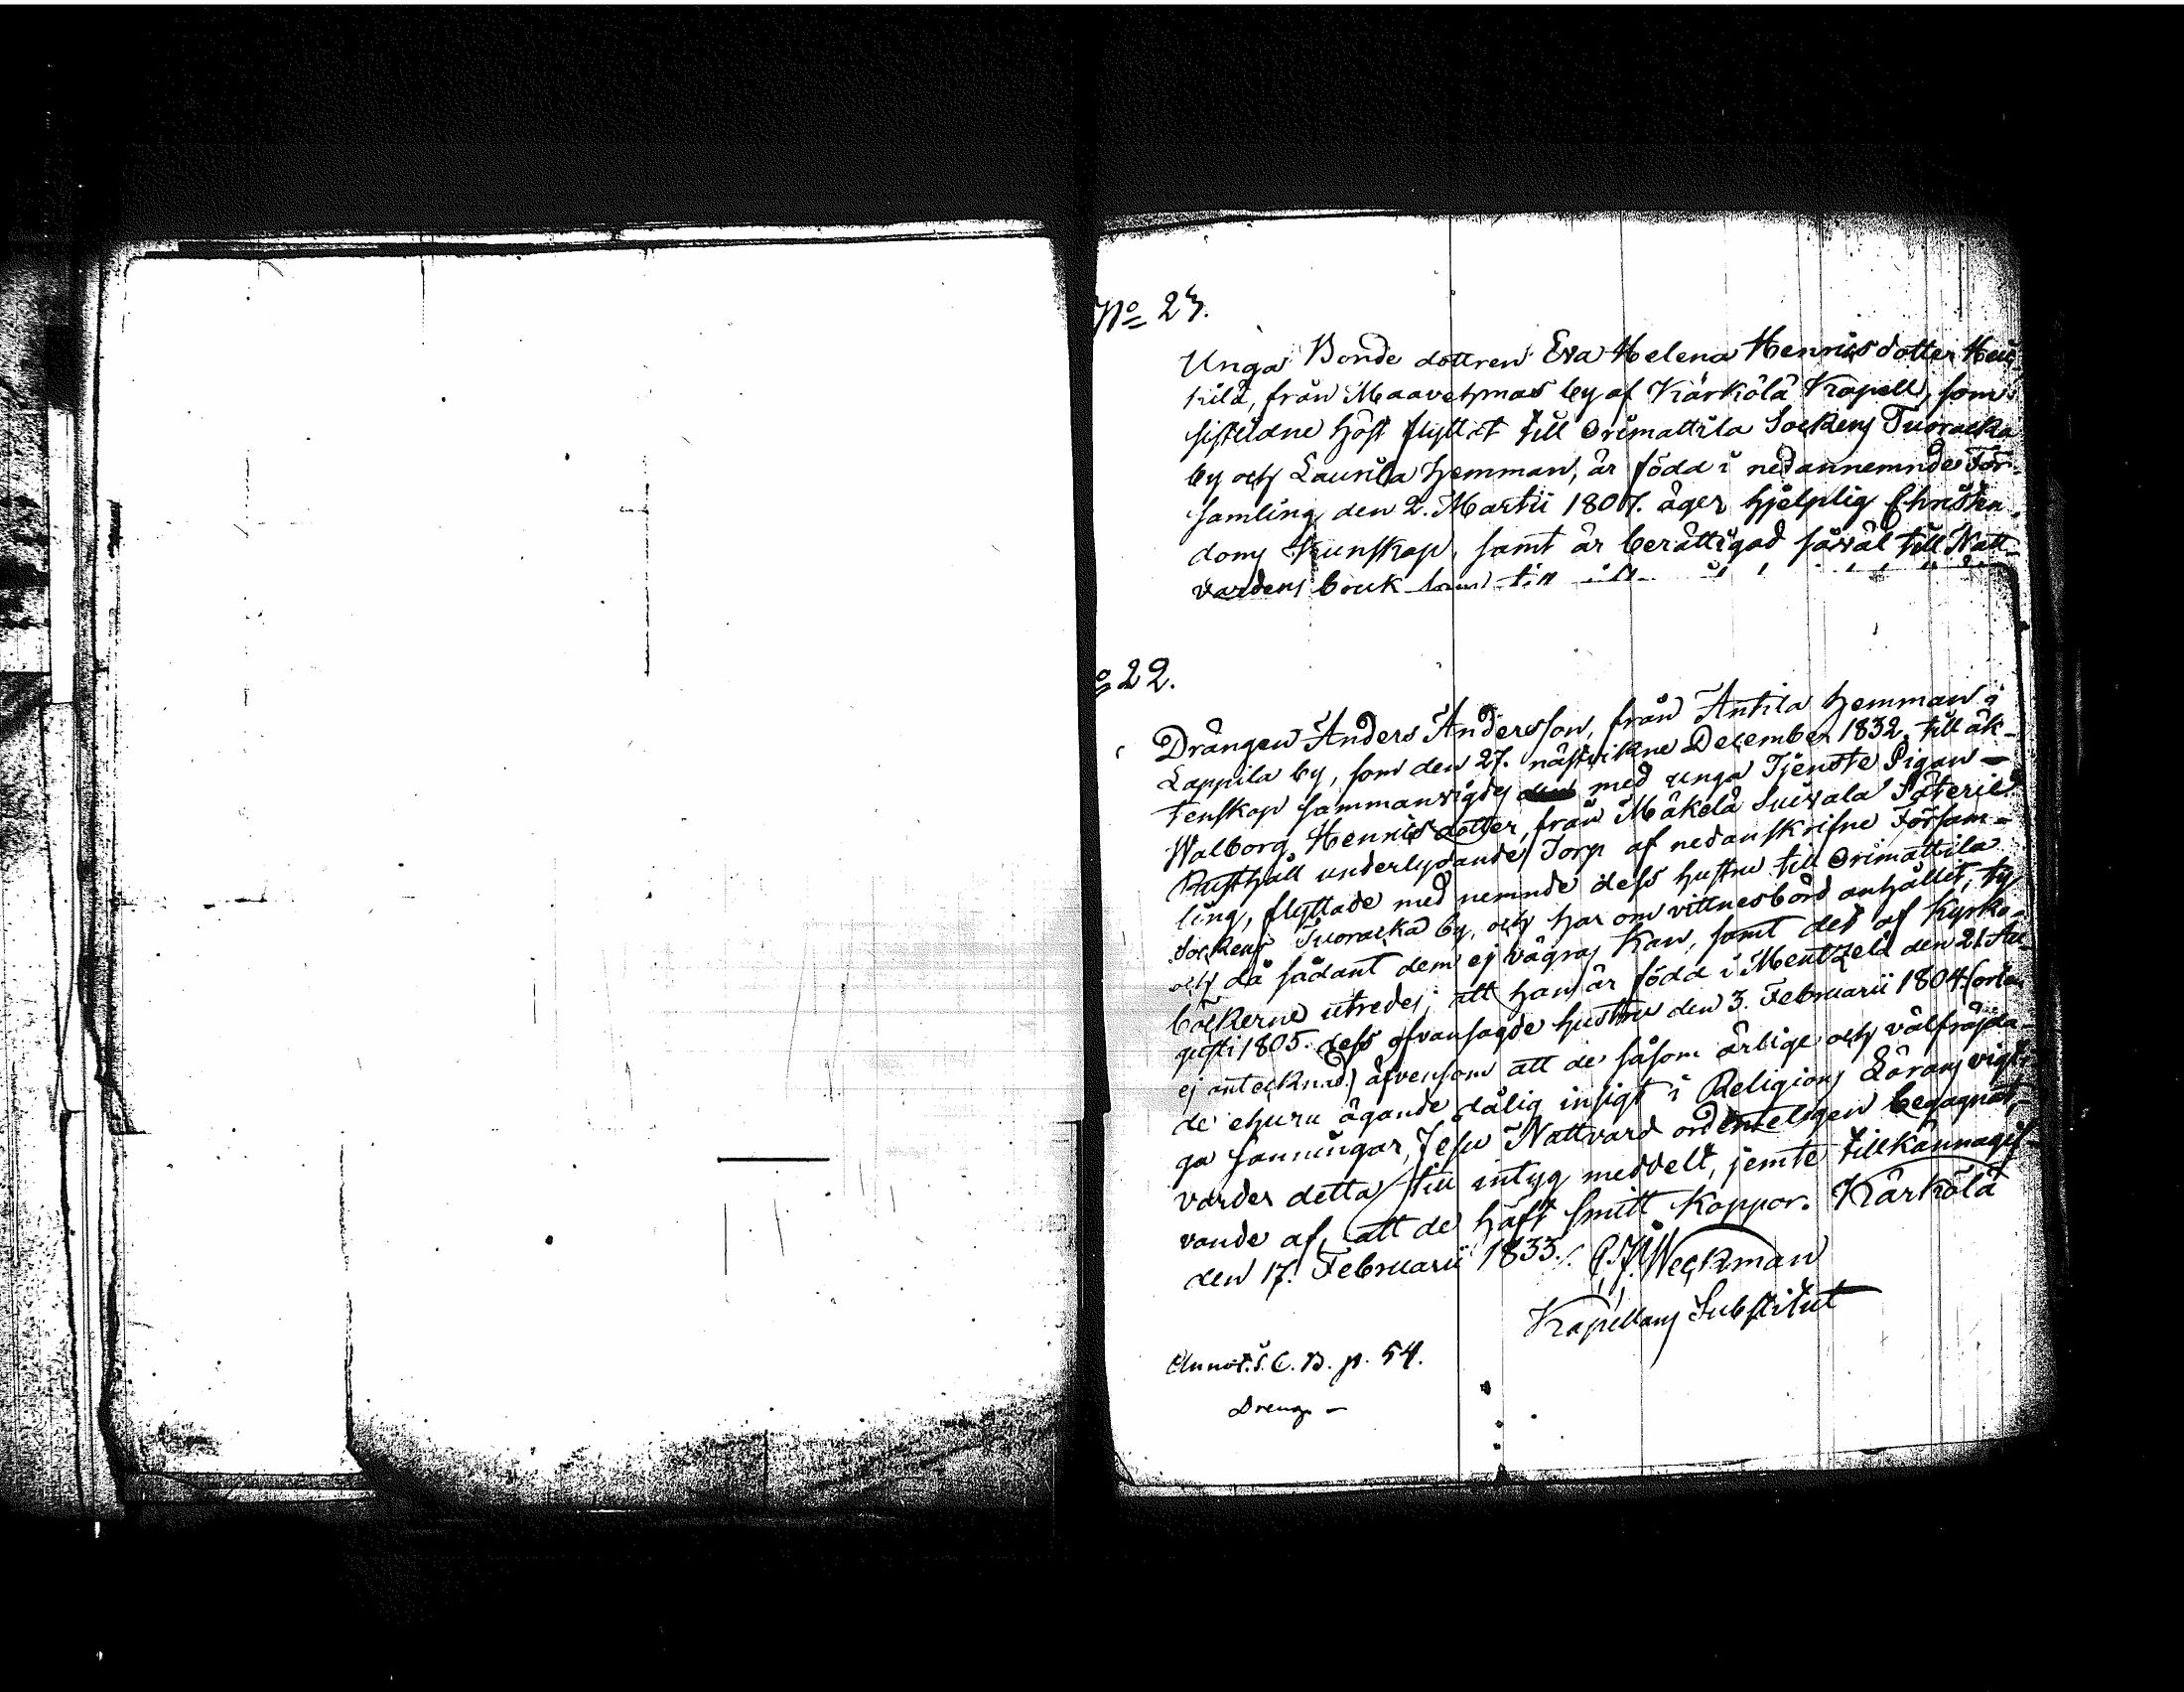 No 23.
Unga Bonde dottren Eva Helena Henricsdotter Heik
kilä, från Maavehmas by af Kärkölä Kapell, som
sistledne höst flyttat till Orimattila Sockens Tuoracka
by och Laurila hemman, är född i nedannemnde För-
samling den 2. Martii 1807. äger hjelplig Christen-
doms Kunskap, samt är berättigad såväl till Natt-
vardens bruk som till
o 22.
Drängen Anders Andersson, från Antila hemman i
Lappila by, som den 27. nästvikne December 1832, till äk-
tenskap sammanvigdes med unga Tjenste Pigan
Walborg Henricsdotter, från Mäkelä Suivala Säterie
Rusthåll underlydande Torp af nedanskrifne Försam-
ling, flyttade med nemnde dess hustru till Orimattila
Sockens Tuoracka by, och har om vittnesbörd anhållit; ty
och då sådant dem ej vägras kan, samt det af Kyrko-
böckerne utredes, att han är född i Mentzelä den 21. Au-
gusti 1805. dess ofvansagde hustru den 3. Februarii 1804. (orten
ej antecknad) äfvensom att de såsom ärlige och välfräjda
de ehuru ägande dålig insigt i Religions Lärans vigti-
ga sanningar, Jesu Nattvard ordenteligen begagnat,
varder detta till intyg meddelt, jemte tillkännagif-
vande af, att de haft smitt koppor. Kärkölä
den 17. Februarii 1833. Weckman
Kapellans Substitut
Annot. i. C. B. p. 54.
Dreng. -